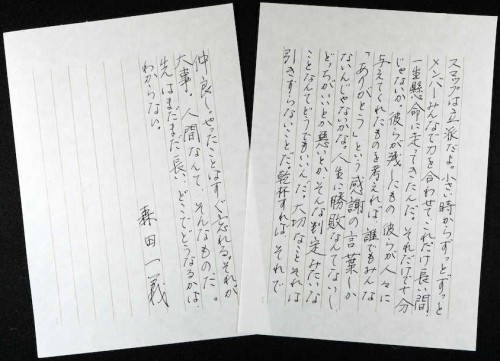 スマップは立派だよ。小さい時からずっとずっと
メンバーみんなで力を合わせて、これだけ長い間、
一生懸命に走ってきたんだ。それだけで十分
じゃないか。彼らが残したもの彼らが人々に
与えてくれたものを考えれば、誰でもみんな
「ありがとう」という感謝の言葉しか
ないんじゃないかな。人生に勝敗なんてないし
どっちがいいとか悪いとか、そんな判定みたいな
ことなんてどうでもいいんだ。大切なことそれは
引きずらないことだ。乾杯すればそれで
仲良し。やったことはすぐ忘れる。それが
大事。人間なんて、そんなものだ。
先はまだまだ長い、どこでどうなるかは、
わからない。
森田一義